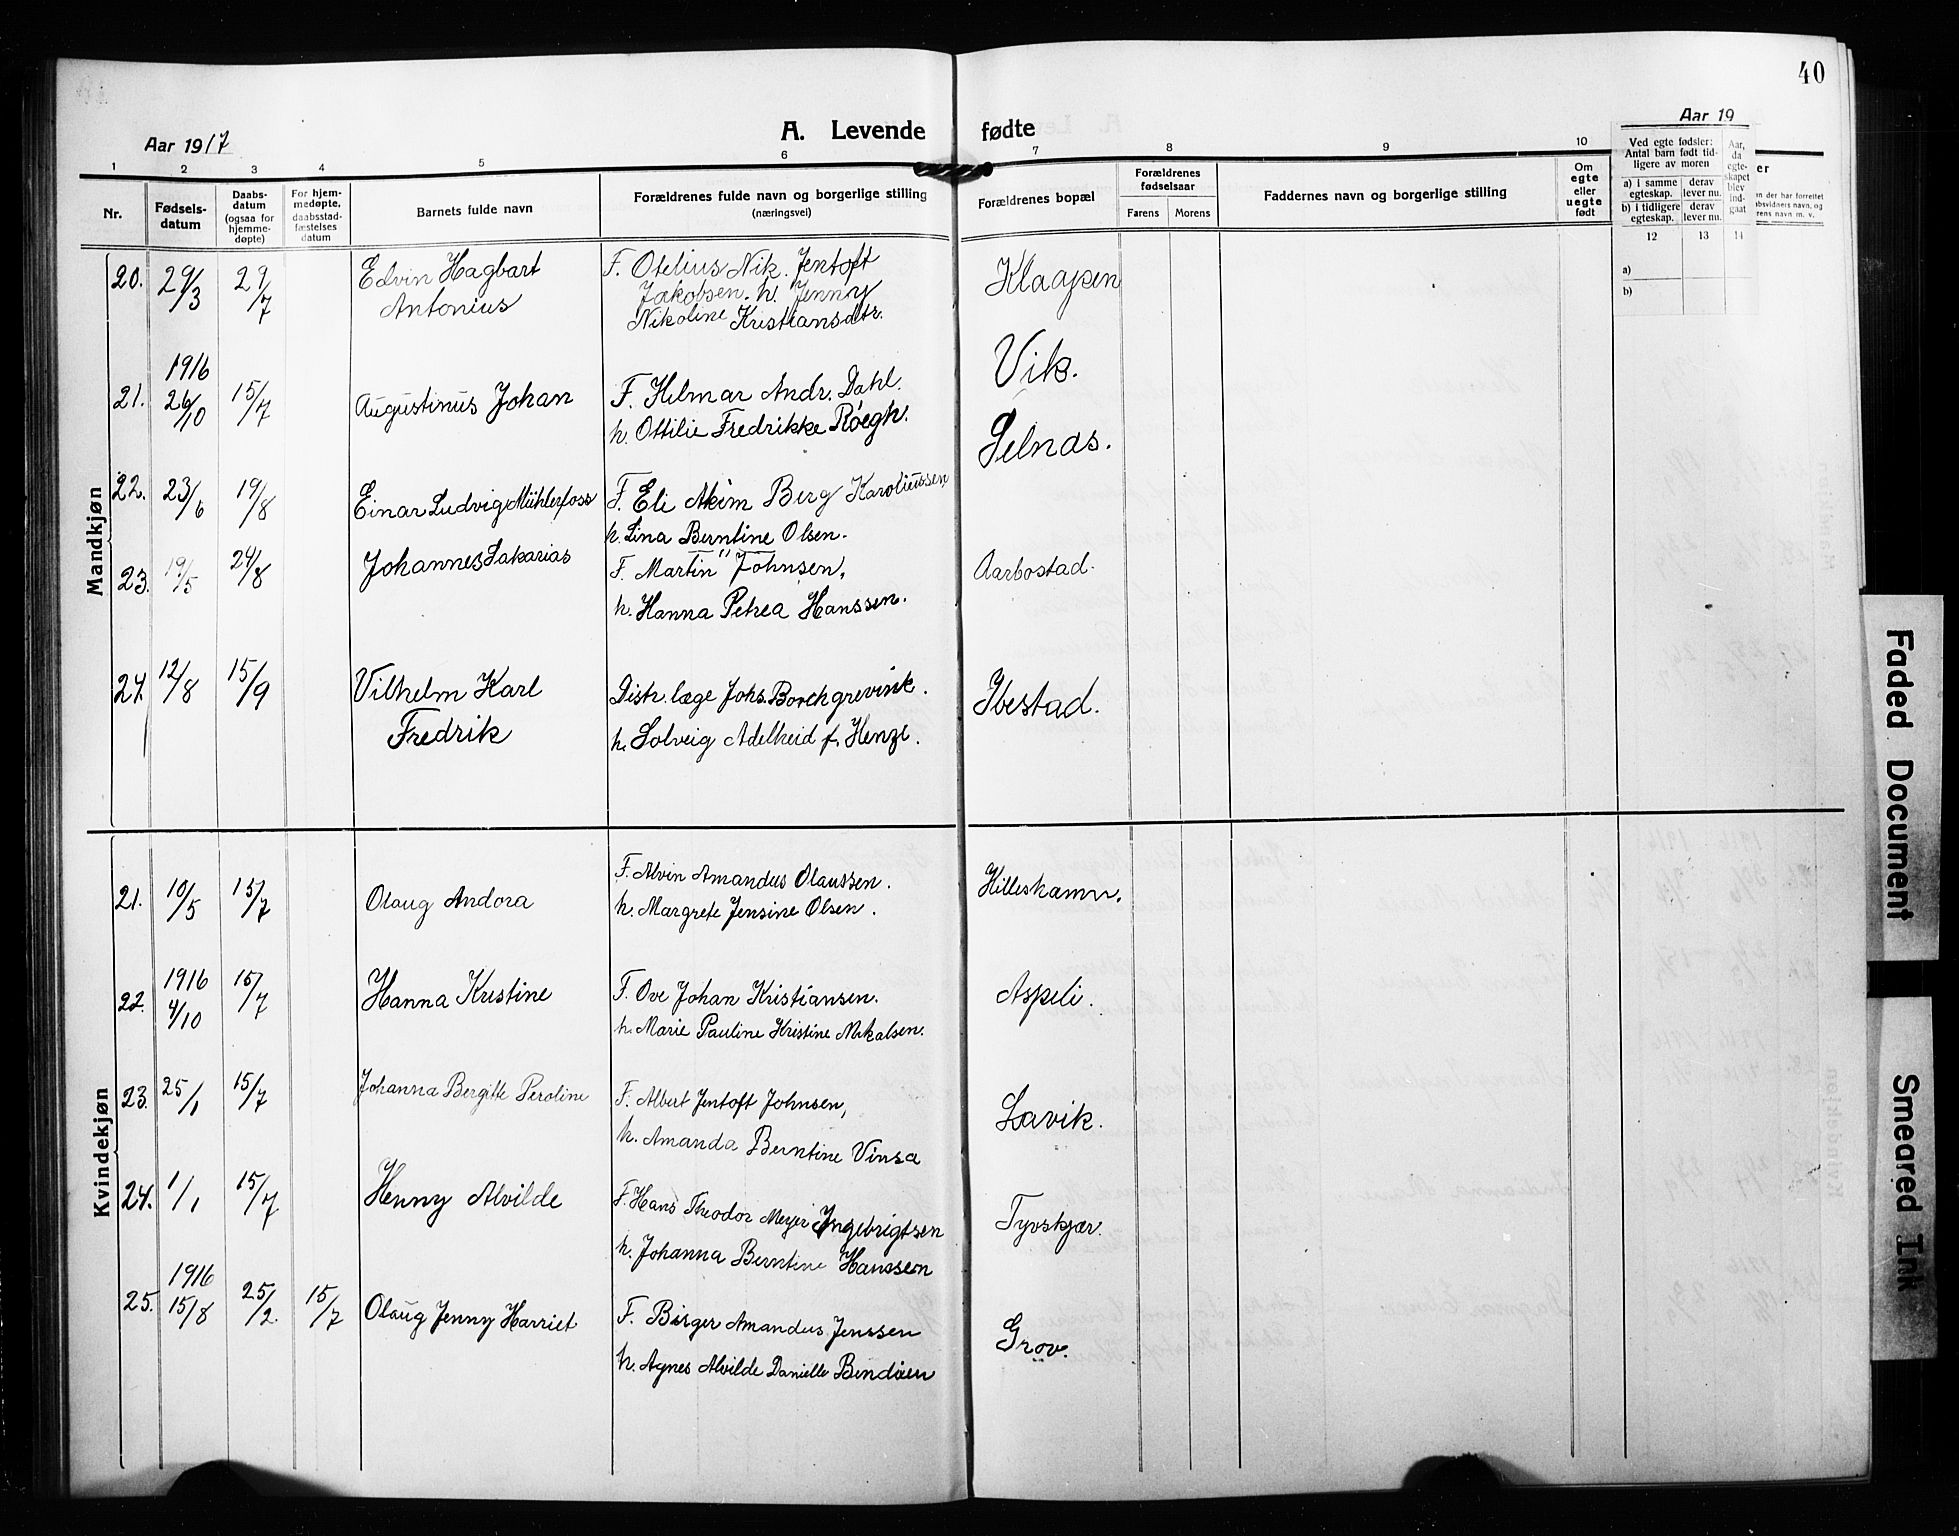 40
Aar 1917
A. Levende fødte
Aar 19
1 2 3 4 5 6 7 8 9 10
Nr.
Fødsels-
datum
Daabs-
datum
(ogsaa for
hjemme-
døpte)
For hjem-
medøpte,
daabsstad-
fæstelses
datum
Barnets fulde navn
Forældrenes fulde navn og borgerlige stilling
(næringsvei)
Forældrenes bopæl
Forældrenes
fødselsaar
Farens Morens
Faddernes navn og borgerlige stilling
Om
egte
eller
uegte
født
Ved egte fødsler:
Antal barn født tid-
ligere av moren
a) i samme
egteskap.
derav
lever nu.
b) i tidligere
egteskap.
derav
lever nu.
Aar,
da
egte-
skapet
blev
ind-
gaat
12 13 14
a)
b)
er
en der har forrettet
absvidners navn, og
rens navn m. v.
Mandkjøn
20. 29/3 29/7 Edvin Hagbart
Antonius
F. Otelius Nik. Jentoft
Jakobsen. h. Jenny
Nikoline Kristiansdtr.
Klaapen
21. 1916
26/10 15/7 Augustinus Johan
F. Hilmar Andr. Dahl.
h. Ottilie Fredrikke Röegh.
Vik.
22. 23/6 19/8 Einar Ludvig Mühlerfoss
F. Eli Akim Berg Karoliussen
h. Lina Berntine Olsen.
Selnas.
23. 19/5 24/8 Johannes Sakarias
F. Martin Johnsen,
h. Hanna Petrea Hanssen.
Aarbostad.
24. 12/8 15/9 Vilhelm Karl
Fredrik
Distr. læge Johs. Borchgrevink.
h. Solveig Adelheid f. Henze.
Ibestad.
Kvindekjøn
21. 10/5 15/7 Olaug Andora
F. Alvin Amandus Olaussen.
h. Margrete Jensine Olsen.
Hilleshamn.
22. 1916
4/10 15/7 Hanna Kristine
F. Ove Johan Kristiansen.
h. Marie Pauline Kristine Mikalsen.
Aspeli.
23. 25/1 15/7 Johanna Bergitte Peroline
F. Albert Jentoft Johnsen,
h. Amanda Berntine Vinsa
Lavik.
24. 1/1 15/7 Henny Alvilde
F. Hans Theodor Meyer Ingebrigtsen
h. Johanna Berntine Hanssen
Tyvskjær.
25. 1916
15/8 25/2 15/7 Olaug Jenny Harriet
F. Birger Amandus Jenssen
h. Agnes Alvilde Danielle Bendixen
Grov.
Faded Document
Smeared Ink